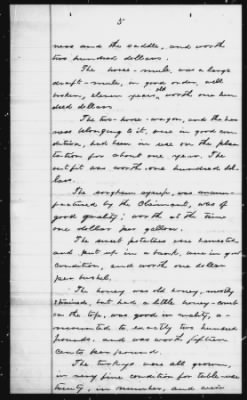 5
ness and the saddle, and worth
two hundred dollars.
The horse-mule, was a large
draft-mule, in good order, well
broken, eleven years old, worth one hun
dred dollars
The two-horse-wagon, and the har
ness belonging to it, were in good con
dition, had been in use on the plan
tation for about one year. The
outfit was worth one hundred dol-
lars.
The sorghum syrup, was manu-
factured by the Claimant, was of
good quality; worth at the time
one dollar per gallon.
The sweet potatoes was harvested
and put up in a bank, were in good
condition, and worth one dollar
per bushel.
The honey was old honey, mostly
strained, but had a little honey-comb
on the top, was good in quality, a-
mounted to exactly two hundred
pounds, and was worth fifteen
cents per pound.
The turkeys were all grown,
in very fine condition for table-use
twenty, in number, and were